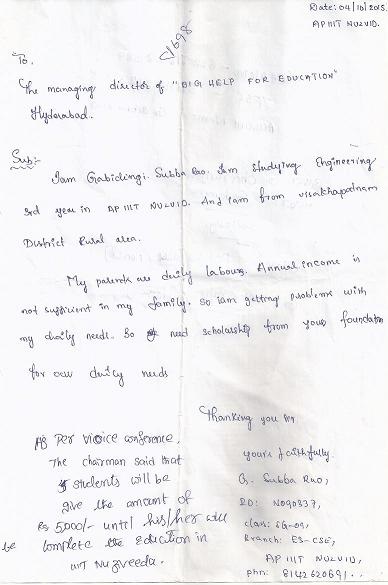 Date: 04/10/2015
AP IIIT NUZVID.
1698
To,
The managing director of "BIG HELP FOR EDUCATION"
Hyderabad.
Sub:-
Iam Grabidingi. Subba Rao. Iam Studying Engineering
3rd year in AP IIIT NUZVID. And iam from visakhapatnam
District Rural area.
My parents are daily labours. Annual income is
not sufficient in my family. So iam getting problems with
my daily needs. So need scholarship from your foundation
for our daily needs
Thanking you sir
yours faithfully.
G. Subba Rao,
ID: N090337,
class: SG-09,
Branch: E3-CSE,
AP IIIT NUZVID,
phn: 8142620691..
As Per voice conference,
The chairman said that
4 students will be
give the amount of
Rs 5000/- until his/her will
be complete the Education in
IIIT Nuzveedu.